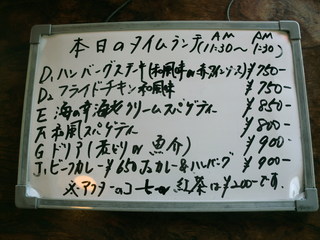 本日のタイムランチ(AM 11:30〜 PM 1:30)
D₁ ハンバーグステーキ(和風味 or 赤ワインソース) ¥750-
D₂ フライドチキン 和風味 ¥750-
E 海の幸 海老クリームスパゲティー ¥850-
F 和風スパゲティー ¥800-
G ドリア(若どり or 魚介) ¥900-
J₁ ビーフカレー ¥650 J₂ カレー&ハンバーグ ¥900-
※アフターのコーヒー or 紅茶は¥200-です。